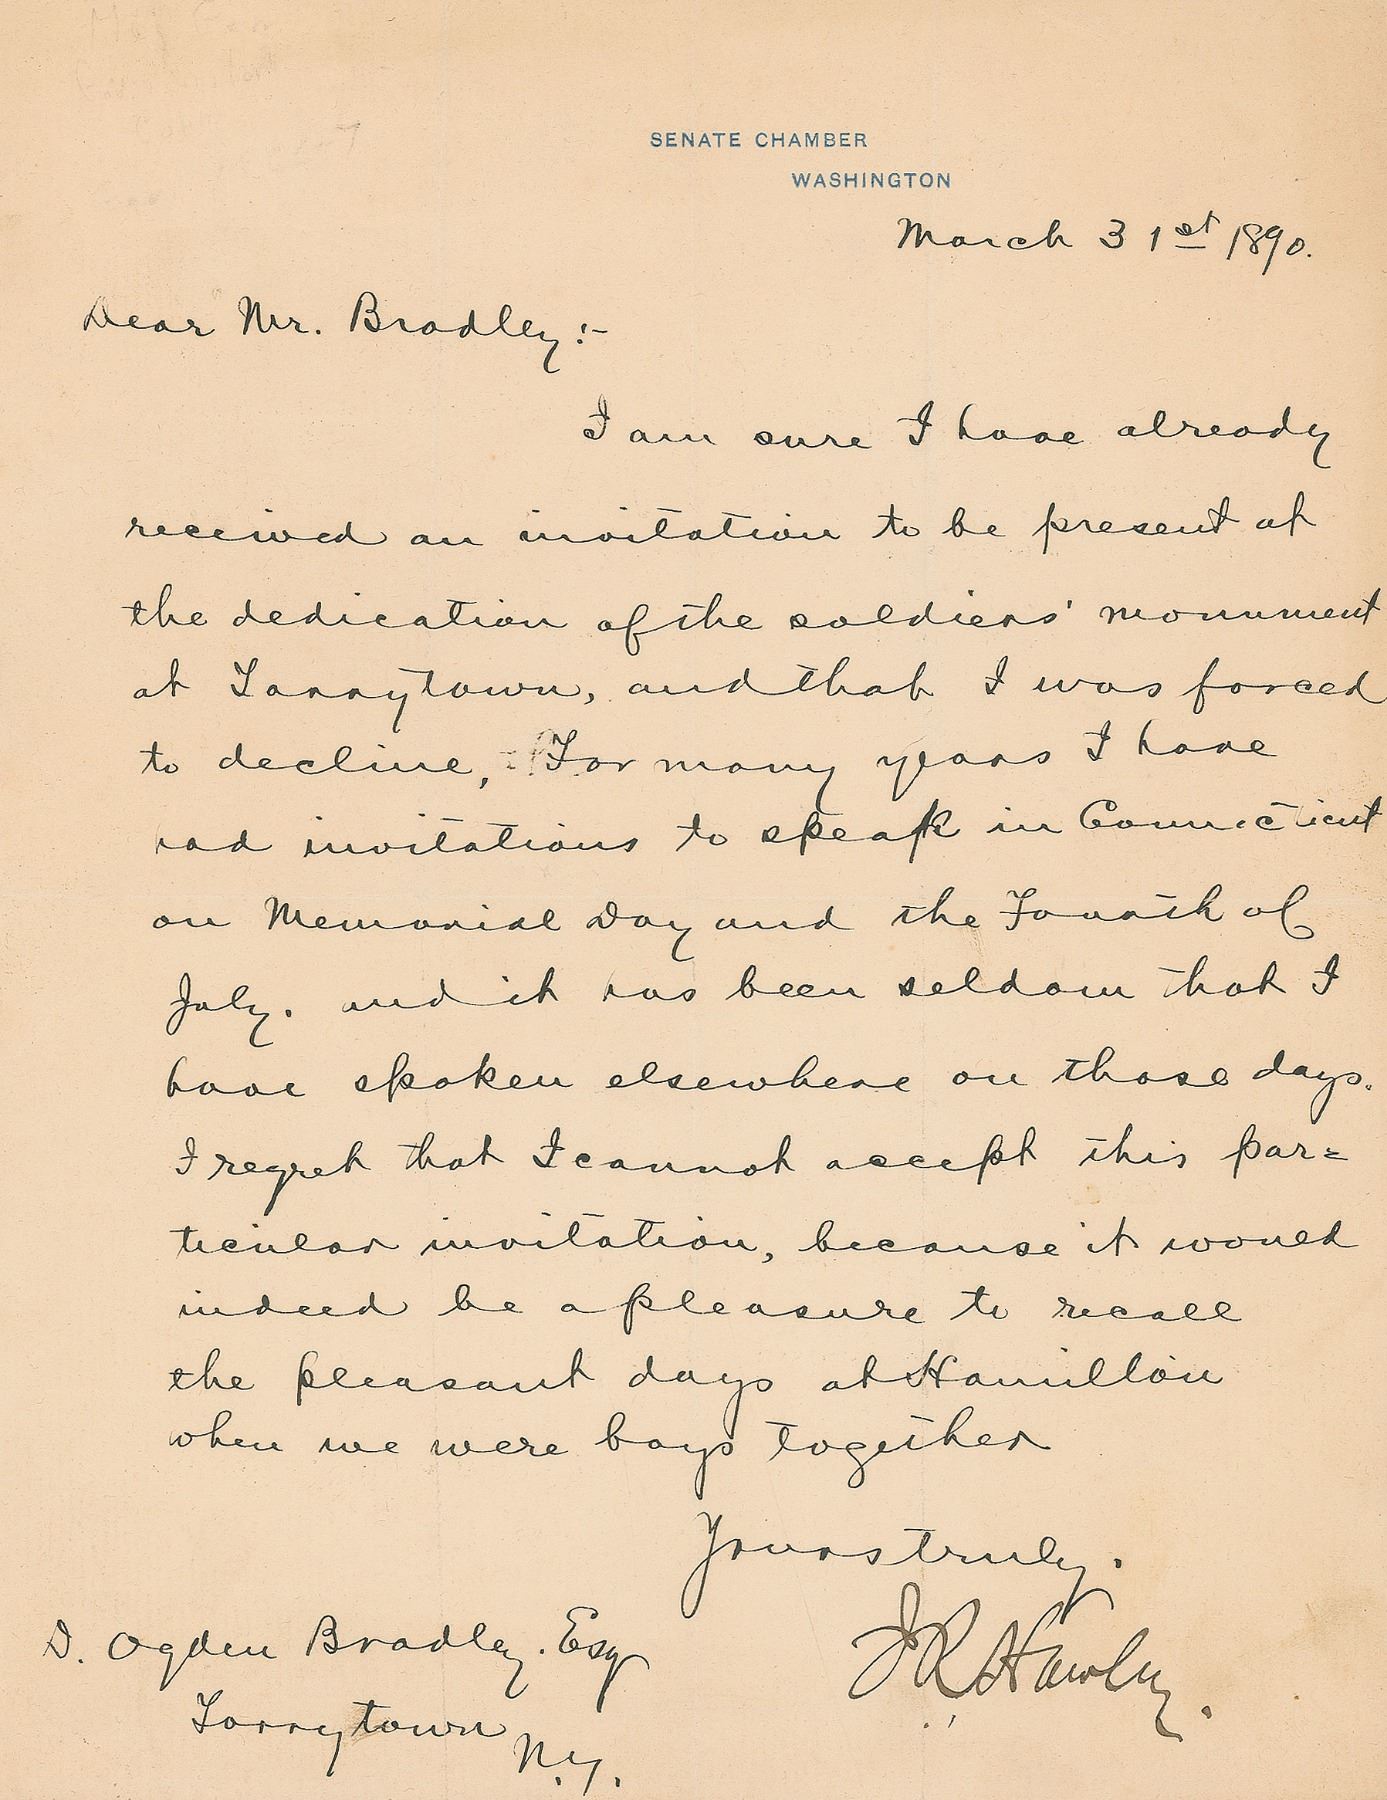 SENATE CHAMBER
WASHINGTON
March 31st 1890.
Dear Mr. Bradley:-
I am sure I have already
received an invitation to be present at
the dedication of the soldiers' monument
at Tarrytown, and that I was forced
to decline, For many years I have
had invitations to speak in Connecticut
on Memorial Day and the Fourth of
July. and it has been seldom that I
have spoken elsewhere on those days.
I regret that I cannot accept this par=
ticular invitation, because it would
indeed be a pleasure to recall
the pleasant days at Hamilton
when we were boys together
Yours truly.
J R Hawley.
D. Ogden Bradley. Esq
Tarrytown
N.Y.